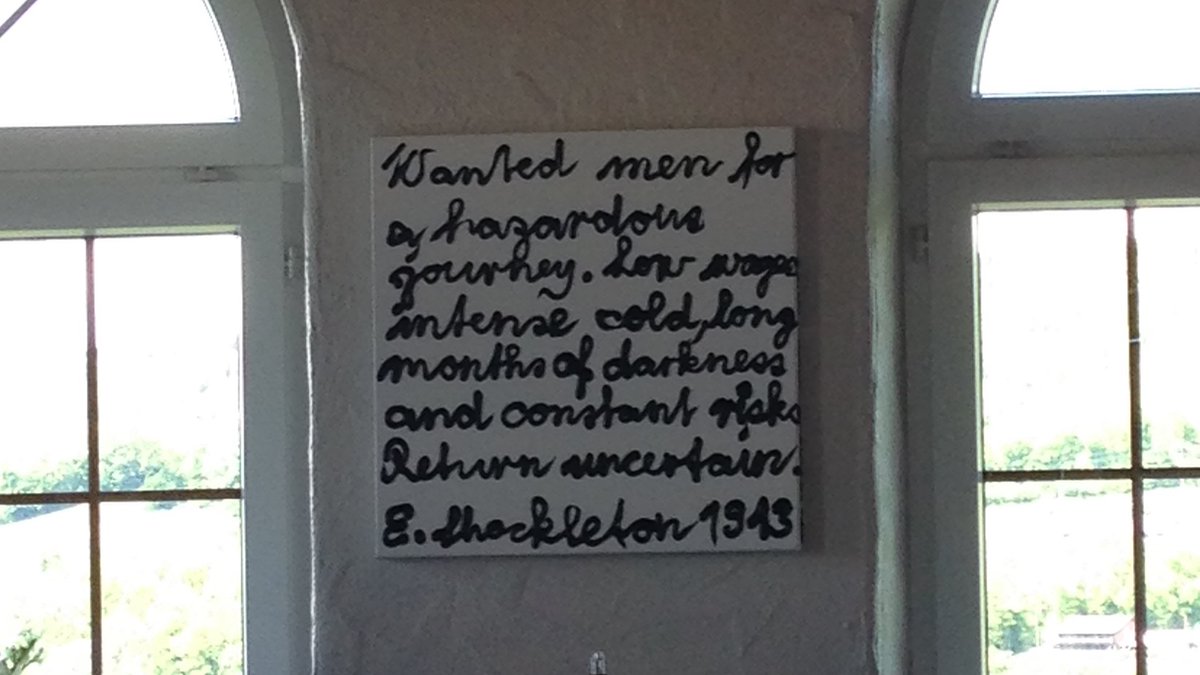 Wanted men for
a hazardous
journey. Low wages
intense cold, long
months of darkness
and constant risks
Return uncertain.
E. Shackleton 1913